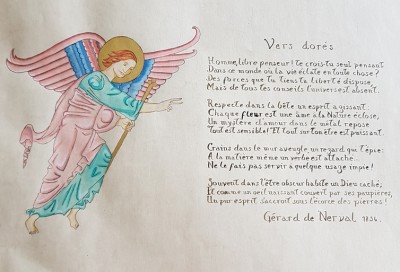 Vers dorés
Homme, libre penseur! te crois-tu seul pensant
Dans ce monde où la vie éclate en toute chose?
Des forces que tu tiens ta liberté dispose,
Mais de tous tes conseils l'univers est absent.
Respecte dans la bête un esprit agissant:
Chaque fleur est une âme à la Nature éclose,
Un mystère d'amour dans le métal repose
"Tout est sensible! Et tout sur ton être est puissant.
Crains dans le mur aveugle, un regard qui t'épie:
A la matière même un verbe est attaché...
Ne la fais pas servir à quelque usage impie!
Souvent dans l'être obscur habite un Dieu caché;
Et comme un œil naissant couvert par ses paupières,
Un pur esprit s'accroît sous l'écorce des pierres!
Gérard de Nerval 1854.